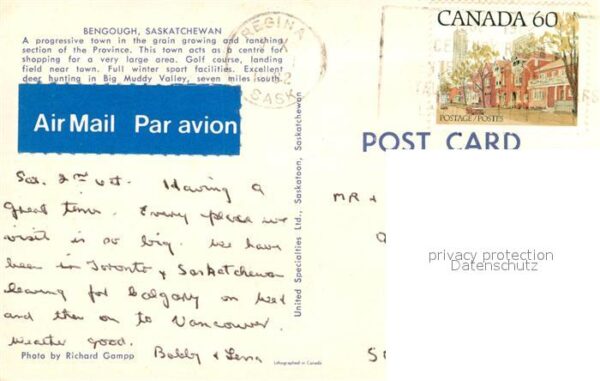 BENGOUGH, SASKATCHEWAN
A progressive town in the grain growing and ranching
section of the Province. This town acts as a centre for
shopping for a very large area. Golf course, landing
field near town. Full winter sport facilities. Excellent
deer hunting in Big Muddy Valley, seven miles south
REGINA
SASK
CANADA 60
POSTAGE/POSTES
Air Mail Par avion
POST CARD
Sat. 2nd Oct. Having a
great time. Every place we
visit is so big. We have
been in Toronto & Saskatchewan
leaving for Calgary on Wed
and then on to Vancouver.
Weather good.
Bobby &
MR &
privacy protection
Datenschutz
United Specialties Ltd., Saskatoon, Saskatchewan
Photo by Richard Gampp
Lithographed in Canada